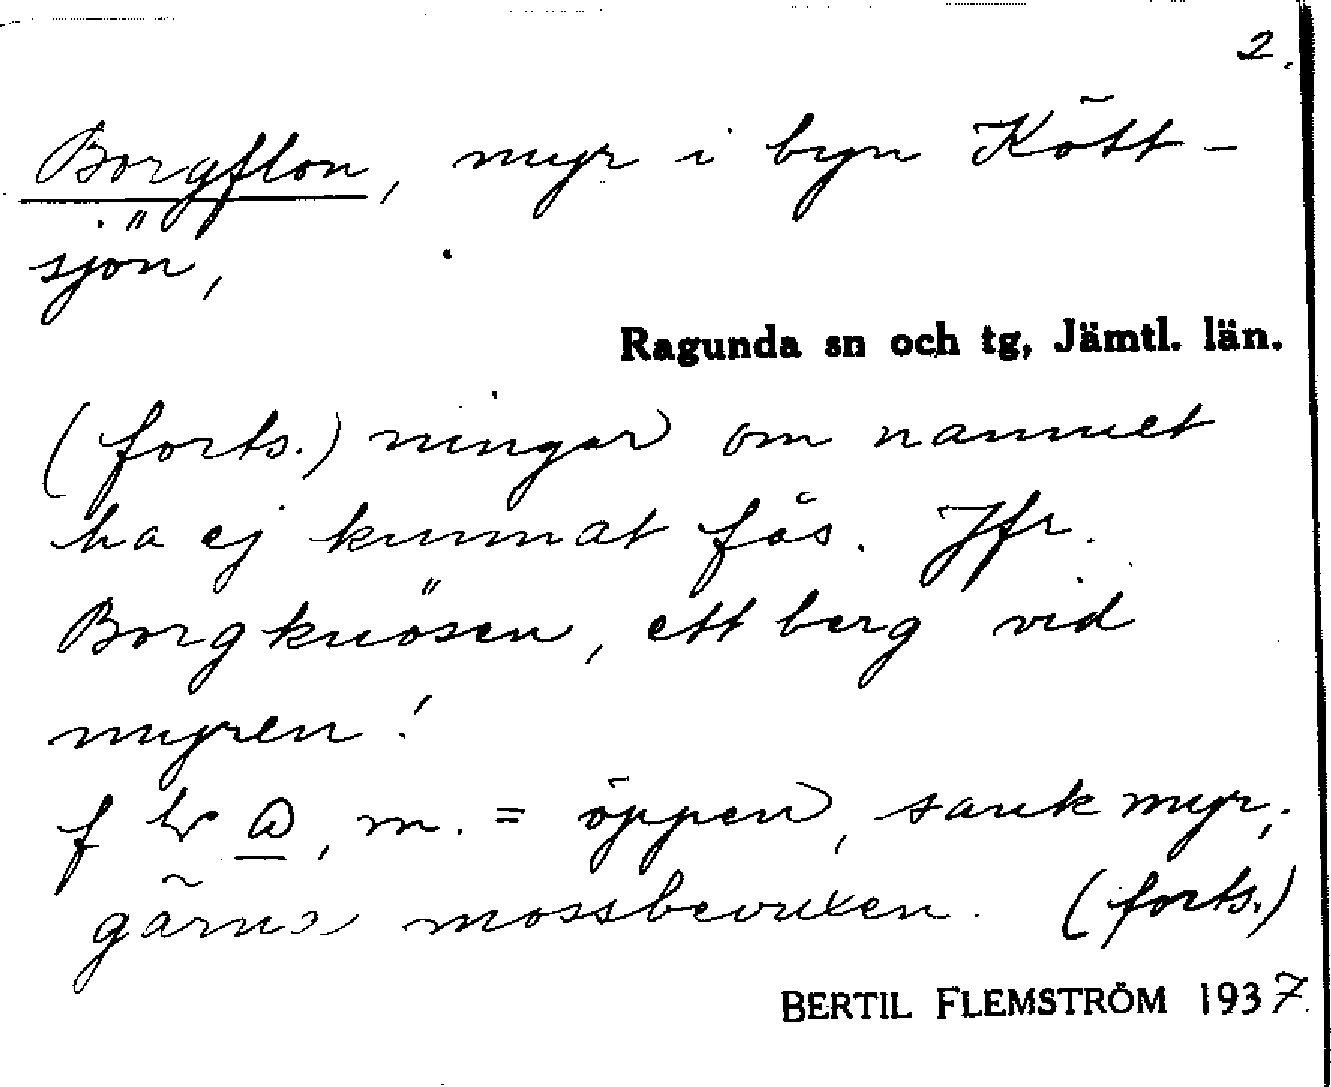 2.
Borgflon, myr i byn Kött-
sjön,
Ragunda sn och tg, Jämtl. län.
(forts.) ningar om namnet
ha ej kunnat fås. Jfr.
Borgknösen, ett berg vid
myren!
m. = öppen, sank myr,
gärna mossbevuxen. (forts.)
BERTIL FLEMSTRÖM 1937.